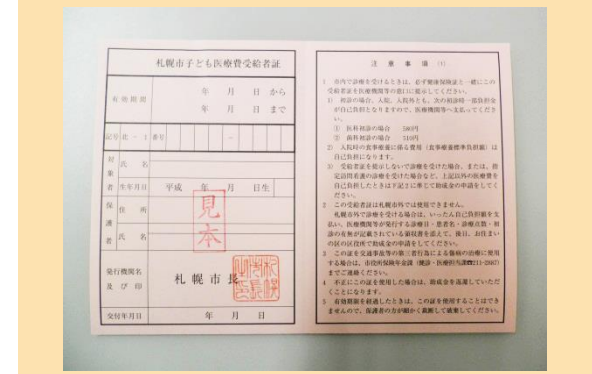 札幌市子ども医療費受給者証
有効期間
年 月 日 から
年 月 日 まで
記号 北-1 番号 -
対象者
氏 名
生年月日 平成 年 月 日生
保護者
住 所
氏 名
見本
発行機関名及び印
札幌市長
交付年月日 年 月 日
注意事項 (1)
1 市内で診療を受けるときは、必ず健康保険証と一緒にこの
受給者証を医療機関等の窓口に提示してください。
1) 初診の場合、入院、入院外とも、次の初診時一部負担金
が自己負担となりますので、医療機関等へ支払ってくださ
い。
① 医科初診の場合 580円
② 歯科初診の場合 510円
2) 入院時の食事療養に係る費用(食事療養標準負担額)は
自己負担になります。
3) 受給者証を提示しないで診療を受けた場合、または、指
定訪問看護の診療を受けた場合など、上記以外の医療費を
自己負担したときは下記2に準じて助成金の申請をしてく
ださい。
2 この受給者証は札幌市外では使用できません。
札幌市外で診療を受ける場合は、いったん自己負担額を支
払い、医療機関等が発行する診療日・患者名・診療点数・初
診の有無が記載されている領収書を添えて、後日、お住まい
の区の区役所で助成金の申請をしてください。
3 この証を交通事故等の第三者行為による傷病の治療に使用
する場合は、市役所保険年金課(健診・医療担当課☎211-2887)
までご連絡ください。
4 不正にこの証を使用した場合は、助成金を返還していただ
くことになります。
5 有効期間を経過したときは、この証を使用することはでき
ませんので、保護者の方が細かく裁断して破棄してください。